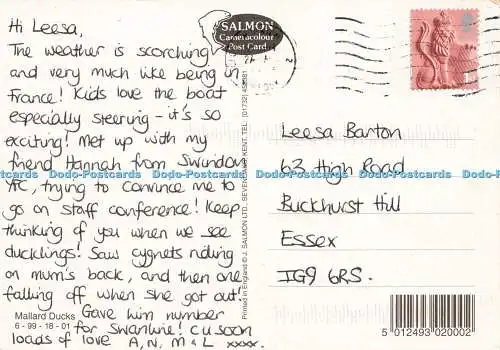 Hi Leesa,
The weather is scorching
and very much like being in
France! Kids love the boat
especially steering - it's so
exciting! Met up with my
friend Hannah from Swindon
YFC, trying to convince me to
go on staff conference! Keep
thinking of you when we see
ducklings! Saw cygnets riding
on mum's back, and then one
falling off when she got out!
Gave him number
for Swanline! C U soon
loads of love A, N, M & L xxxx.
Mallard Ducks
6 - 99 - 18 - 01
SALMON
Cameracolour
Post Card
Printed in England © J. SALMON LTD., SEVENOAKS, KENT. TEL: (01732) 452381
Leesa Barton
63 High Road
Buckhurst Hill
Essex
IG9 6RS.
5 012493 020002
Dodo-Postcards Dodo-Postcards Dodo-Postcards Dodo-Postcards